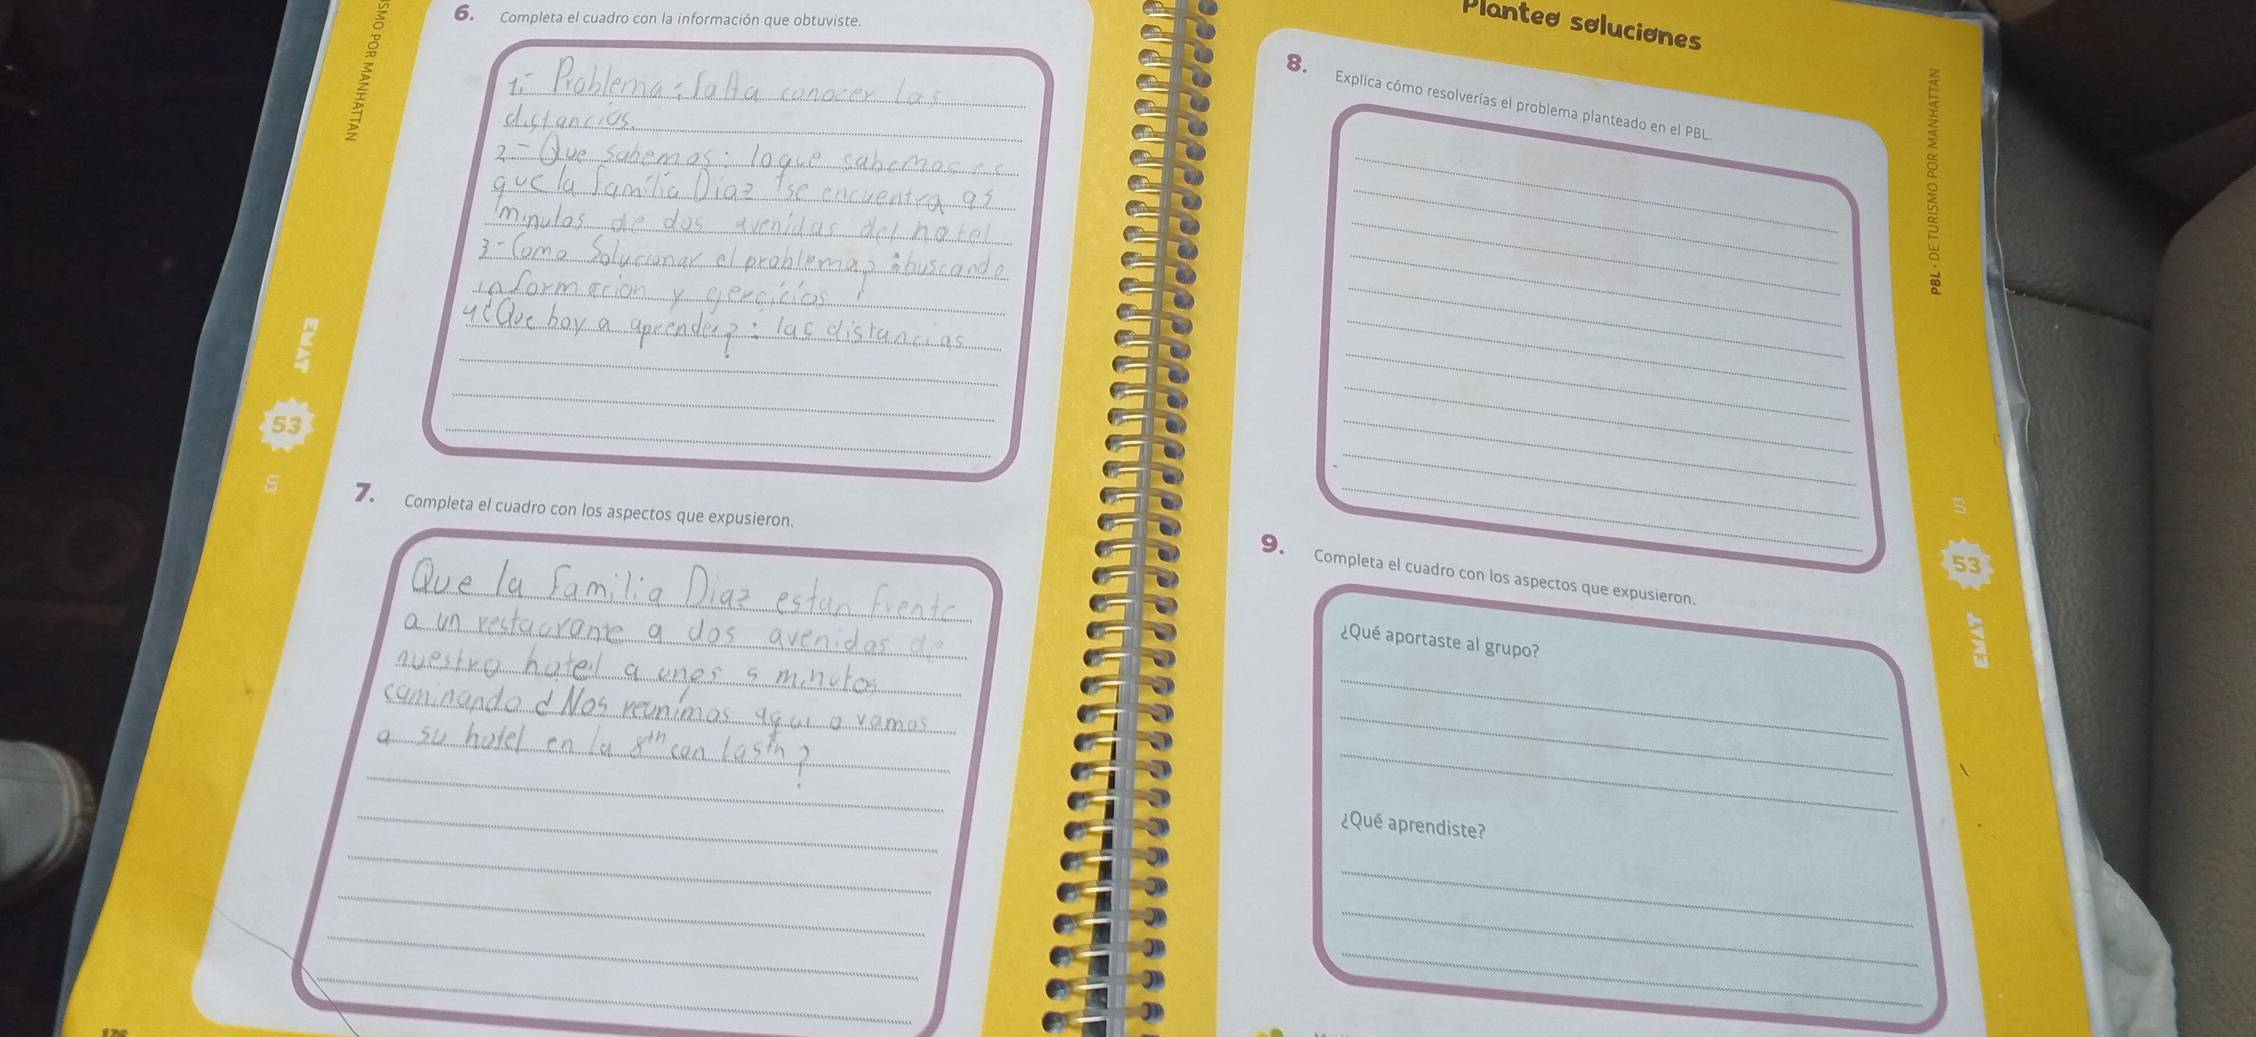 SMO POR MANHATTAN
6. Completa el cuadro con la información que obtuviste.
1- Problema: falta conocer las
distancias.
2- Que sabemos: loque sabemos es
que la familia Diaz se encuentra a 5
minutos de dos avenidas del hotel
3- Como Solucionar el problema? : buscando
informacion y gercicios
4¿Que boy a aprender?: las distancias
EMAT
53
U3
7. Completa el cuadro con los aspectos que expusieron.
Que la familia Diaz estan frente
a un restaurante a dos avenidas de
nuestro hotel a unos 5 minutos
caminando ¿Nos reunimos aqui o vamos
a su hotel en la 8th con las th?
176
Planteo soluciones
8. Explica cómo resolverías el problema planteado en el PBL.
9. Completa el cuadro con los aspectos que expusieron.
¿Qué aportaste al grupo?
¿Qué aprendiste?
PBL - DE TURISMO POR MANHATTAN
U3
53
EMAT